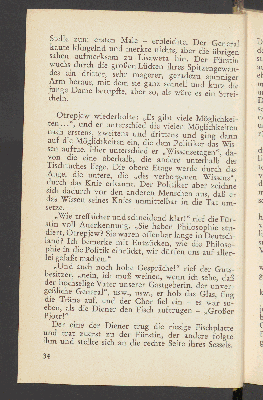 Stelle zum ersten Male – erbleichte. Der General
kaute klingelnd und merkte nichts, aber die übrigen
sahen aufmerksam zu Lisaweta hin. Der Fürstin
wuchs durch die großen Lücken ihres Spitzengewan-
des ein dritter, sehr magerer, geradezu runzliger
Arm heraus, mit dem sie ganz schnell, und kurz die
junge Dame betupfte, aber so, als wäre es ein Strei-
cheln.
Otrepjew wiederholte: „Es gibt viele Möglichkei-
ten...“, und er unterschied die vielen Möglichkeiten
nach erstens, zweitens und drittens und ging dann
auf die Möglichkeiten ein, die dem Politiker das Wis-
sen auftue. Hier unterschied er „Wissensetagen“, da-
von die eine oberhalb, die andere unterhalb der
Tischplatte liege. Die obere Etage werde durch das
Auge, die untere, die „des verborgenen Wissens“,
durch das Knie erkannt. Der Politiker aber zeichne
sich dadurch vor den anderen Menschen aus, daß er
das Wissen seines Knies unmittelbar in die Tat um-
setze.
„Wie treffsicher und schneidend klar!“ rief die Für-
stin voll Anerkennung. „Sie haben Philosophie stu-
diert, Otrepjew? Sie waren offenbar lange in Deutsch-
land? Ich bemerke mit Entzücken, wie die Philoso-
phie in die Politik einrückt, wir dürfen uns auf aller-
lei gefaßt machen.“
„Und auch noch hohe Gespräche!“ rief der Guts-
besitzer, „nein, ich muß weinen, wenn ich sehe, daß
der hochselige Vater unserer Gastgeberin, der unver-
geßliche General“, usw., usw., er hob das Glas, fing
die Träne auf, und der Chor fiel ein – es war so-
eben, als die Diener den Fisch auftrugen – „Großer
Pjotr!“
Der eine der Diener trug die riesige Fischplatte
und trat zuerst zu der Fürstin, der andere folgte
ihm und stellte sich an die rechte Seite ihres Sessels.
34